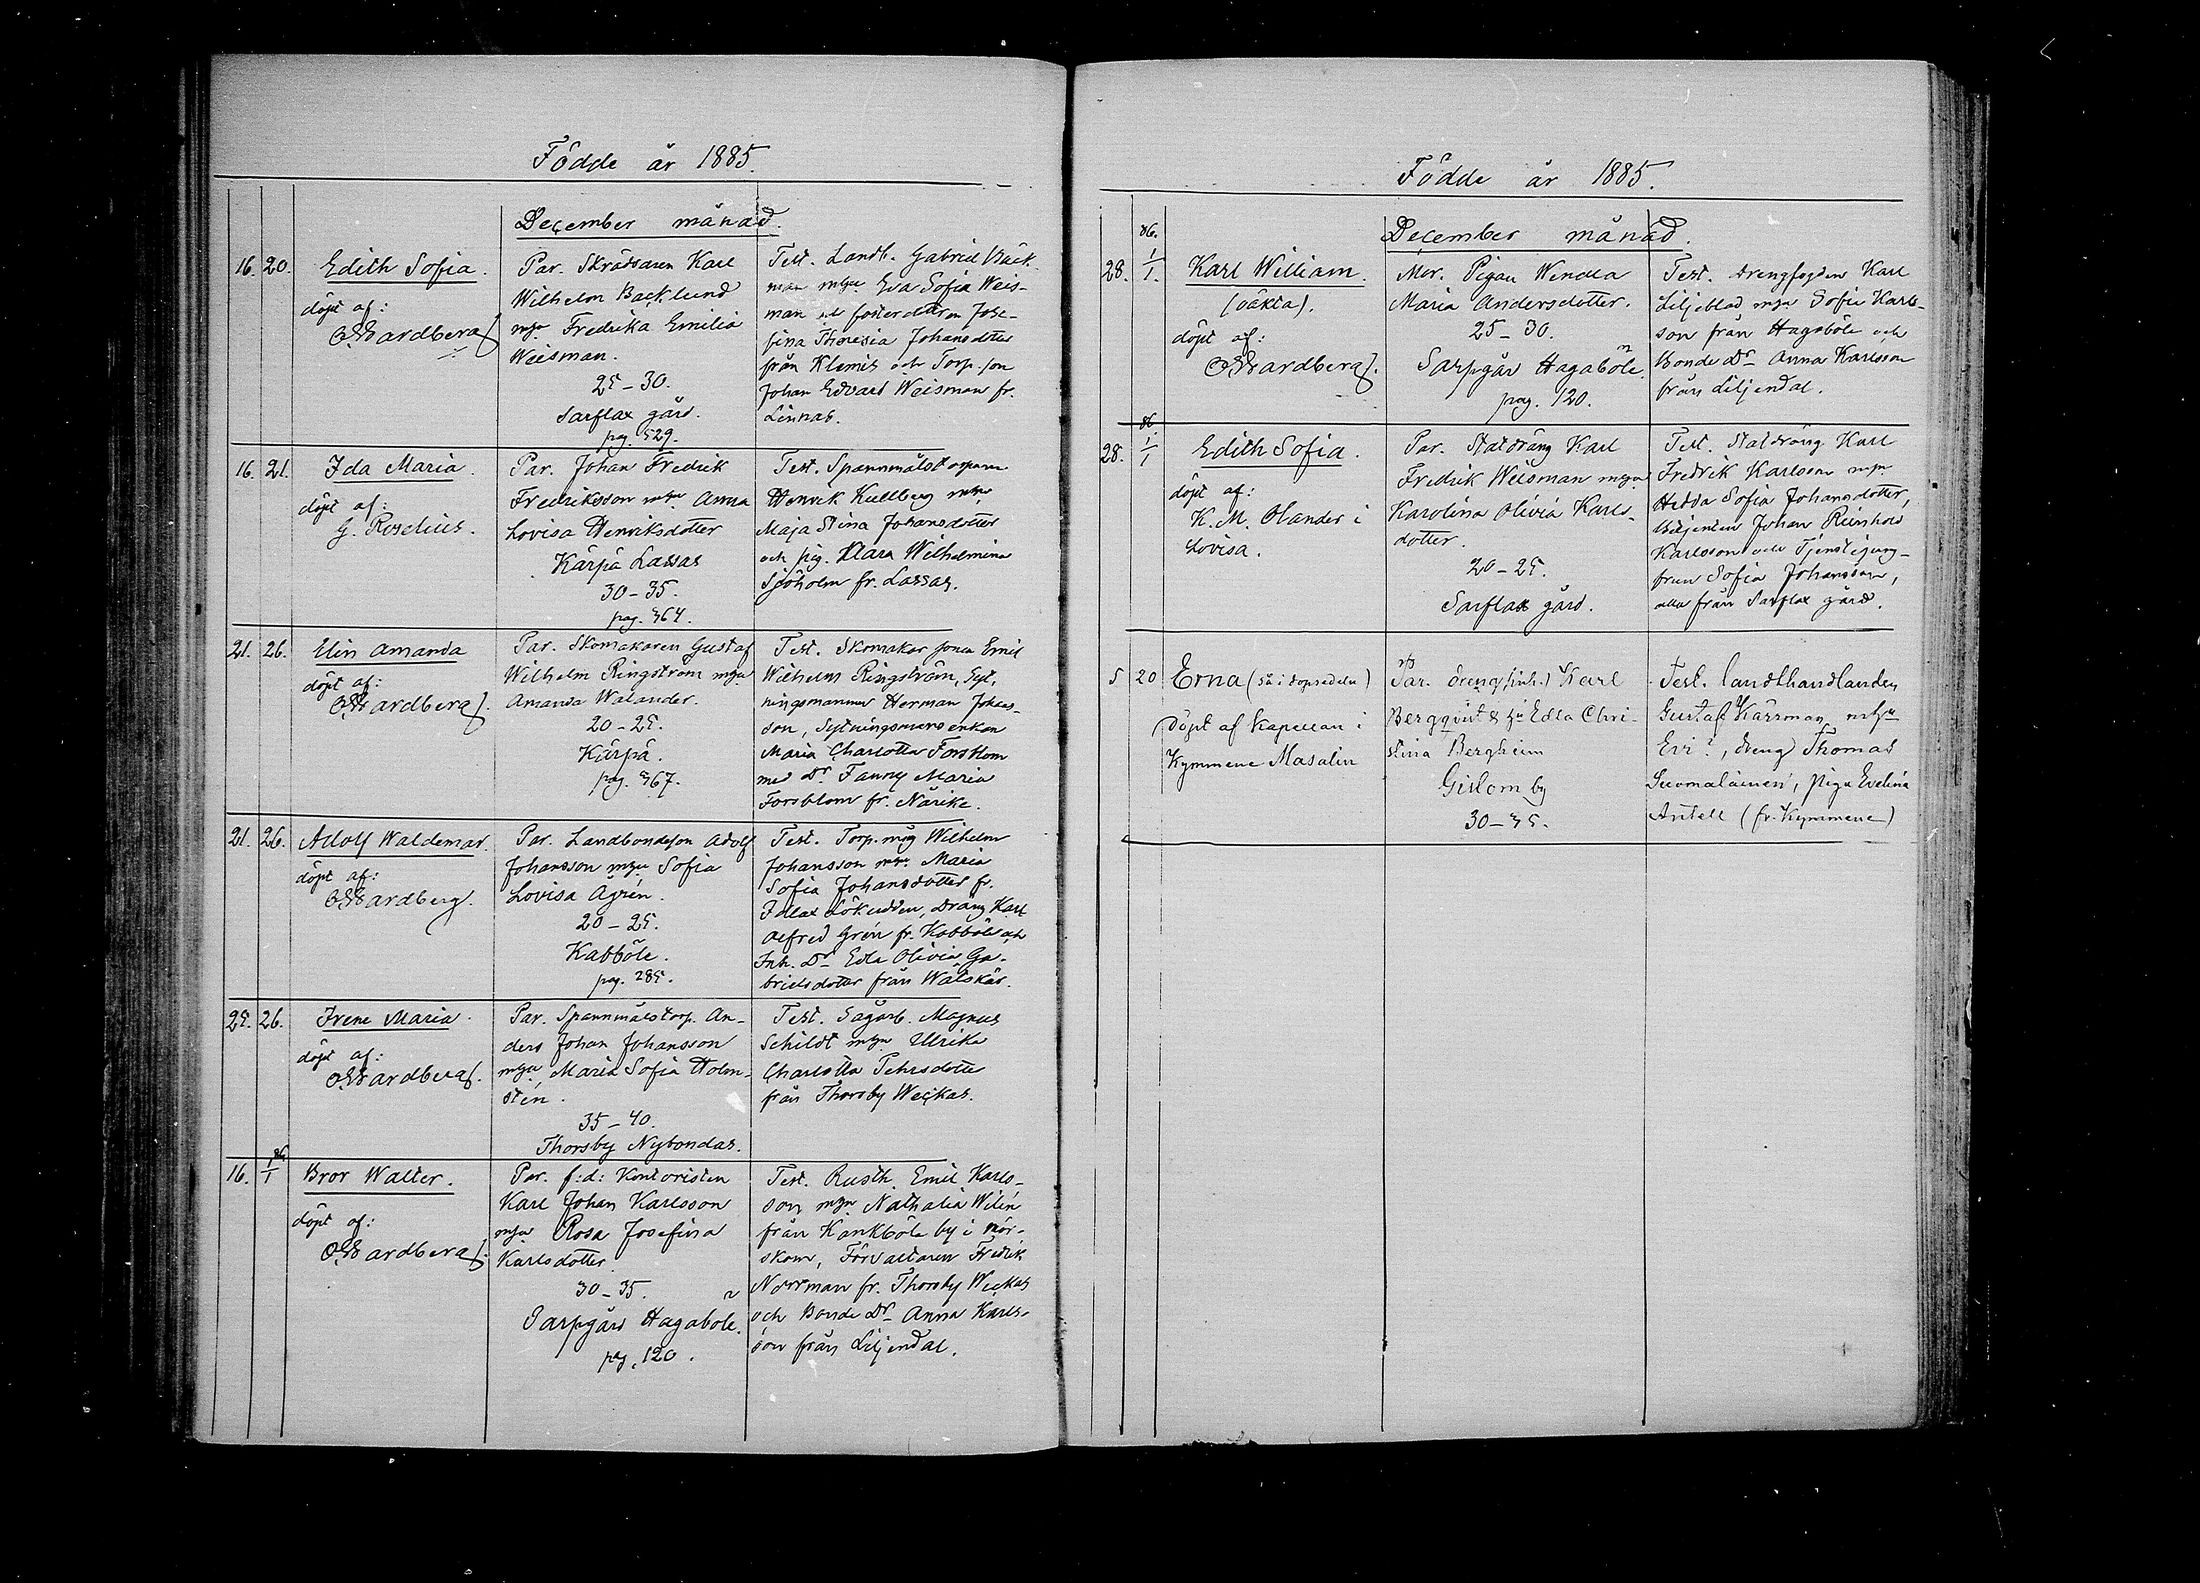 Födde år 1885.
December månad.
16. 20. Edith Sofia.
döpt af:
Wardberg
Par. Skräddaren Karl
Wilhelm Backlund
mhu Fredrika Emilia
Weisman.
25-30.
Sarflax gård.
pag. 529.
Test. Landb. Gabriel Bäck-
man mhu Eva Sofia Weis-
man fosterdttren Jose-
fina Theresia Johansdtter
från Klemis och Torp. son
Johan Edvard Weisman fr.
Linnas.
16. 21. Ida Maria.
döpt af:
G. Roselius.
Par. Johan Fredrik
Fredriksson mhu Anna
Lovisa Henriksdotter
Kärpä Lassas
30-35.
pag. 364.
Test. Spannmålstorparen
Henrik Kullberg mhu
Maja Stina Johansdotter
och pig. Klara Wilhelmina
Sjöholm fr. Lassas.
21. 26. Elin Amanda
döpt af:
Wardberg.
Par. Skomakaren Gustaf
Wilhelm Ringström mhu
Amanda Walander.
20-25.
Kärpä.
pag. 367.
Test. Skomakar sonen Emil
Wilhelm Ringström, Syt-
ningsmannen Herman Johans-
son, Sytningsmans enkan
Maria Charlotta Forsblom
med Dr Fanny Maria
Forsblom fr. Närike.
21. 26. Adolf Waldemar.
döpt af:
Wardberg.
Par. Landbondeson Adolf
Johansson mhu Sofia
Lovisa Ågrén.
20-25.
Kabböle.
pag. 285.
Test. Torp. måg Wilhelm
Johansson mhu Maria
Sofia Johansdotter fr.
Idlax Lökudden, Dräng Karl
Alfred Grén fr. Kabböle och
Inh. Dr Edla Olivia Ga-
brielsdotter från Walskär.
25. 26. Irene Maria.
döpt af:
Wardberg.
Par. Spannmålstorp. An-
ders Johan Johansson
mhu Maria Sofia Holm-
stén.
35-40.
Thorsby Nybondas.
Test. Sågarb. Magnus
Schildt mhu Ulrika
Charlotta Pehrsdotter
från Thorsby Weckas.
86.
16. 1/1 Bror Walter.
döpt af:
Wardberg.
Par. f:d: Kontoristen
Karl Johan Karlsson
mhu Rosa Josefina
Karlsdotter.
30-35.
Sarpgård Hagaböle.
pag. 120.
Test. Rusth. Emil Karls-
son mhu Nathalia Wilén
från Kankböle by i Mör-
skom, Förvaltaren Fredrik
Norrman fr. Thorsby Weckas
och Bonde Dr Anna Karls-
son från Liljendal.
Födde år 1885.
December månad.
86.
28. 1/1. Karl William.
(oäkta).
döpt af:
Wardberg.
Mor. Pigan Wendla
Maria Andersdotter.
25-30.
Sarpgård Hagaböle.
pag. 120.
Test. drengfogden Karl
Liljeblad mhu Sofia Karls-
son från Hagaböle och
Bonde Dr Anna Karlsson
från Liljendal.
86.
28. 1/1 Edith Sofia.
döpt af:
K. M. Olander i
Lovisa.
Par. Statdräng Karl
Fredrik Weisman mhu
Karolina Olivia Karls-
dotter.
20-25.
Sarflax gård.
Test. Statdräng Karl
Fredrik Karlsson mhu
Hedda Sofia Johansdotter,
Betjenten Johan Reinhold
Karlsson och Tjenstejung-
frun Sofia Johansson,
alla från Sarflax gård.
5 20 Erna (så i dopsedeln)
Döpt af Kapellan i
Kymmene Masalin
Par. dreng (inh.) Karl
Bergqvist & hu Edla Chri-
stina Bergheim
Gislom by
30-35.
Test. landthandlanden
Gustaf Kärrman mhu
Evi?, dreng Thomas
Suomalainen, piga Evelina
Antell (fr. Kymmene)